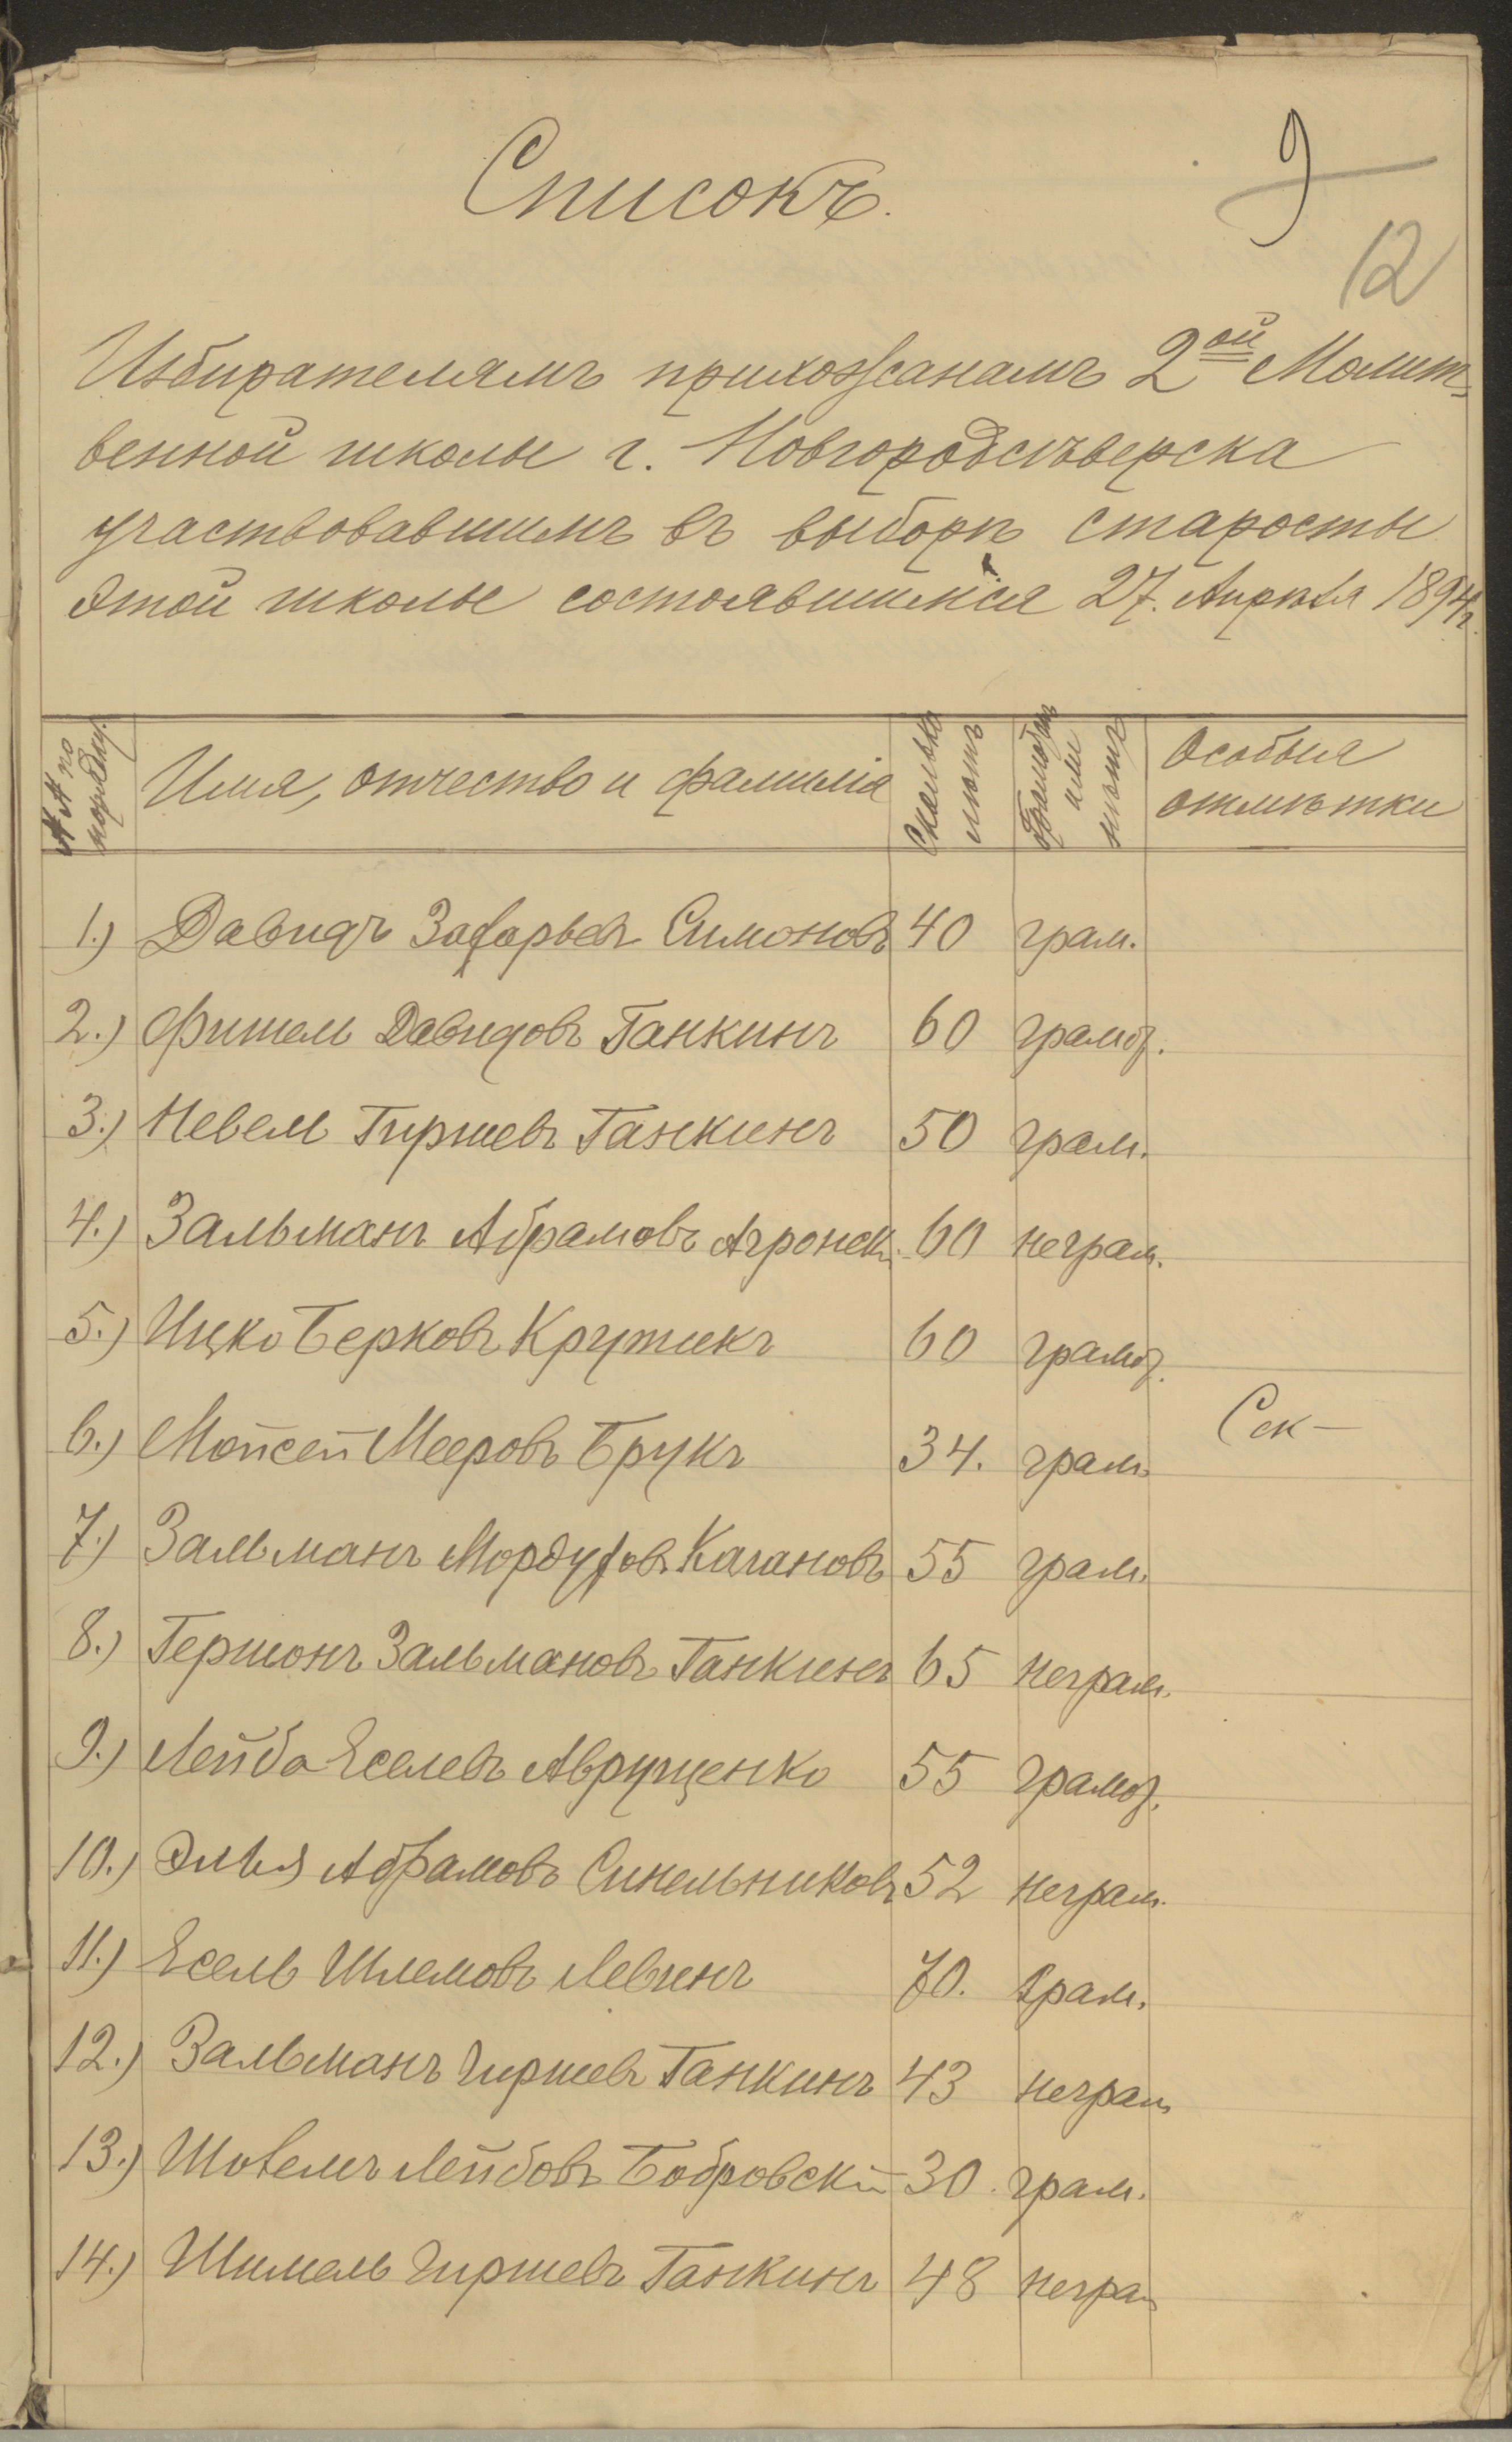 9
12
Списокъ.
Избирателямъ прихожанамъ 2ой Молит-
венной школы г. Новгородсѣверска
участвовавшимъ въ выборѣ старосты
этой школы состоявшимся 27. Апрѣля 1894 г.
№№ по порядку. Имя, отчество и фамилія Сколько лѣтъ Грамотенъ или нѣтъ Особыя отмѣтки
1.) Давидъ Захарьевъ Симоновъ 40 грам.
2.) Фишель Давидовъ Ганкинъ 60 грамот.
3.) Невель Гиршевъ Ганкинъ 50 грам.
4.) Зальманъ Абрамовъ Агронск. 60 неграм.
5.) Ицко Берковъ Крутикъ 60 грамот.
6.) Мойсей Мееровъ Брукъ 34. грам. Сек-
7.) Зальманъ Мордуховъ Кагановъ 55 грам.
8.) Гершонъ Зальмановъ Ганкинъ 65 неграм.
9.) Лейба Еселевъ Авруценко 55 грамот.
10.) Элья Абрамовъ Синельниковъ 52 неграм.
11.) Есель Шлемовъ Левинъ 70. грам.
12.) Зальманъ Гиршевъ Ганкинъ 43 неграм
13.) Шовелъ Лейбовъ Бобровскій 30. грам.
14.) Шимель Гиршевъ Ганкинъ 48 неграм